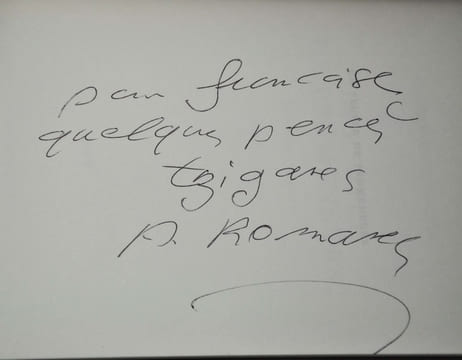 pour francoise
quelques pencés
tziganes
A. Romanes